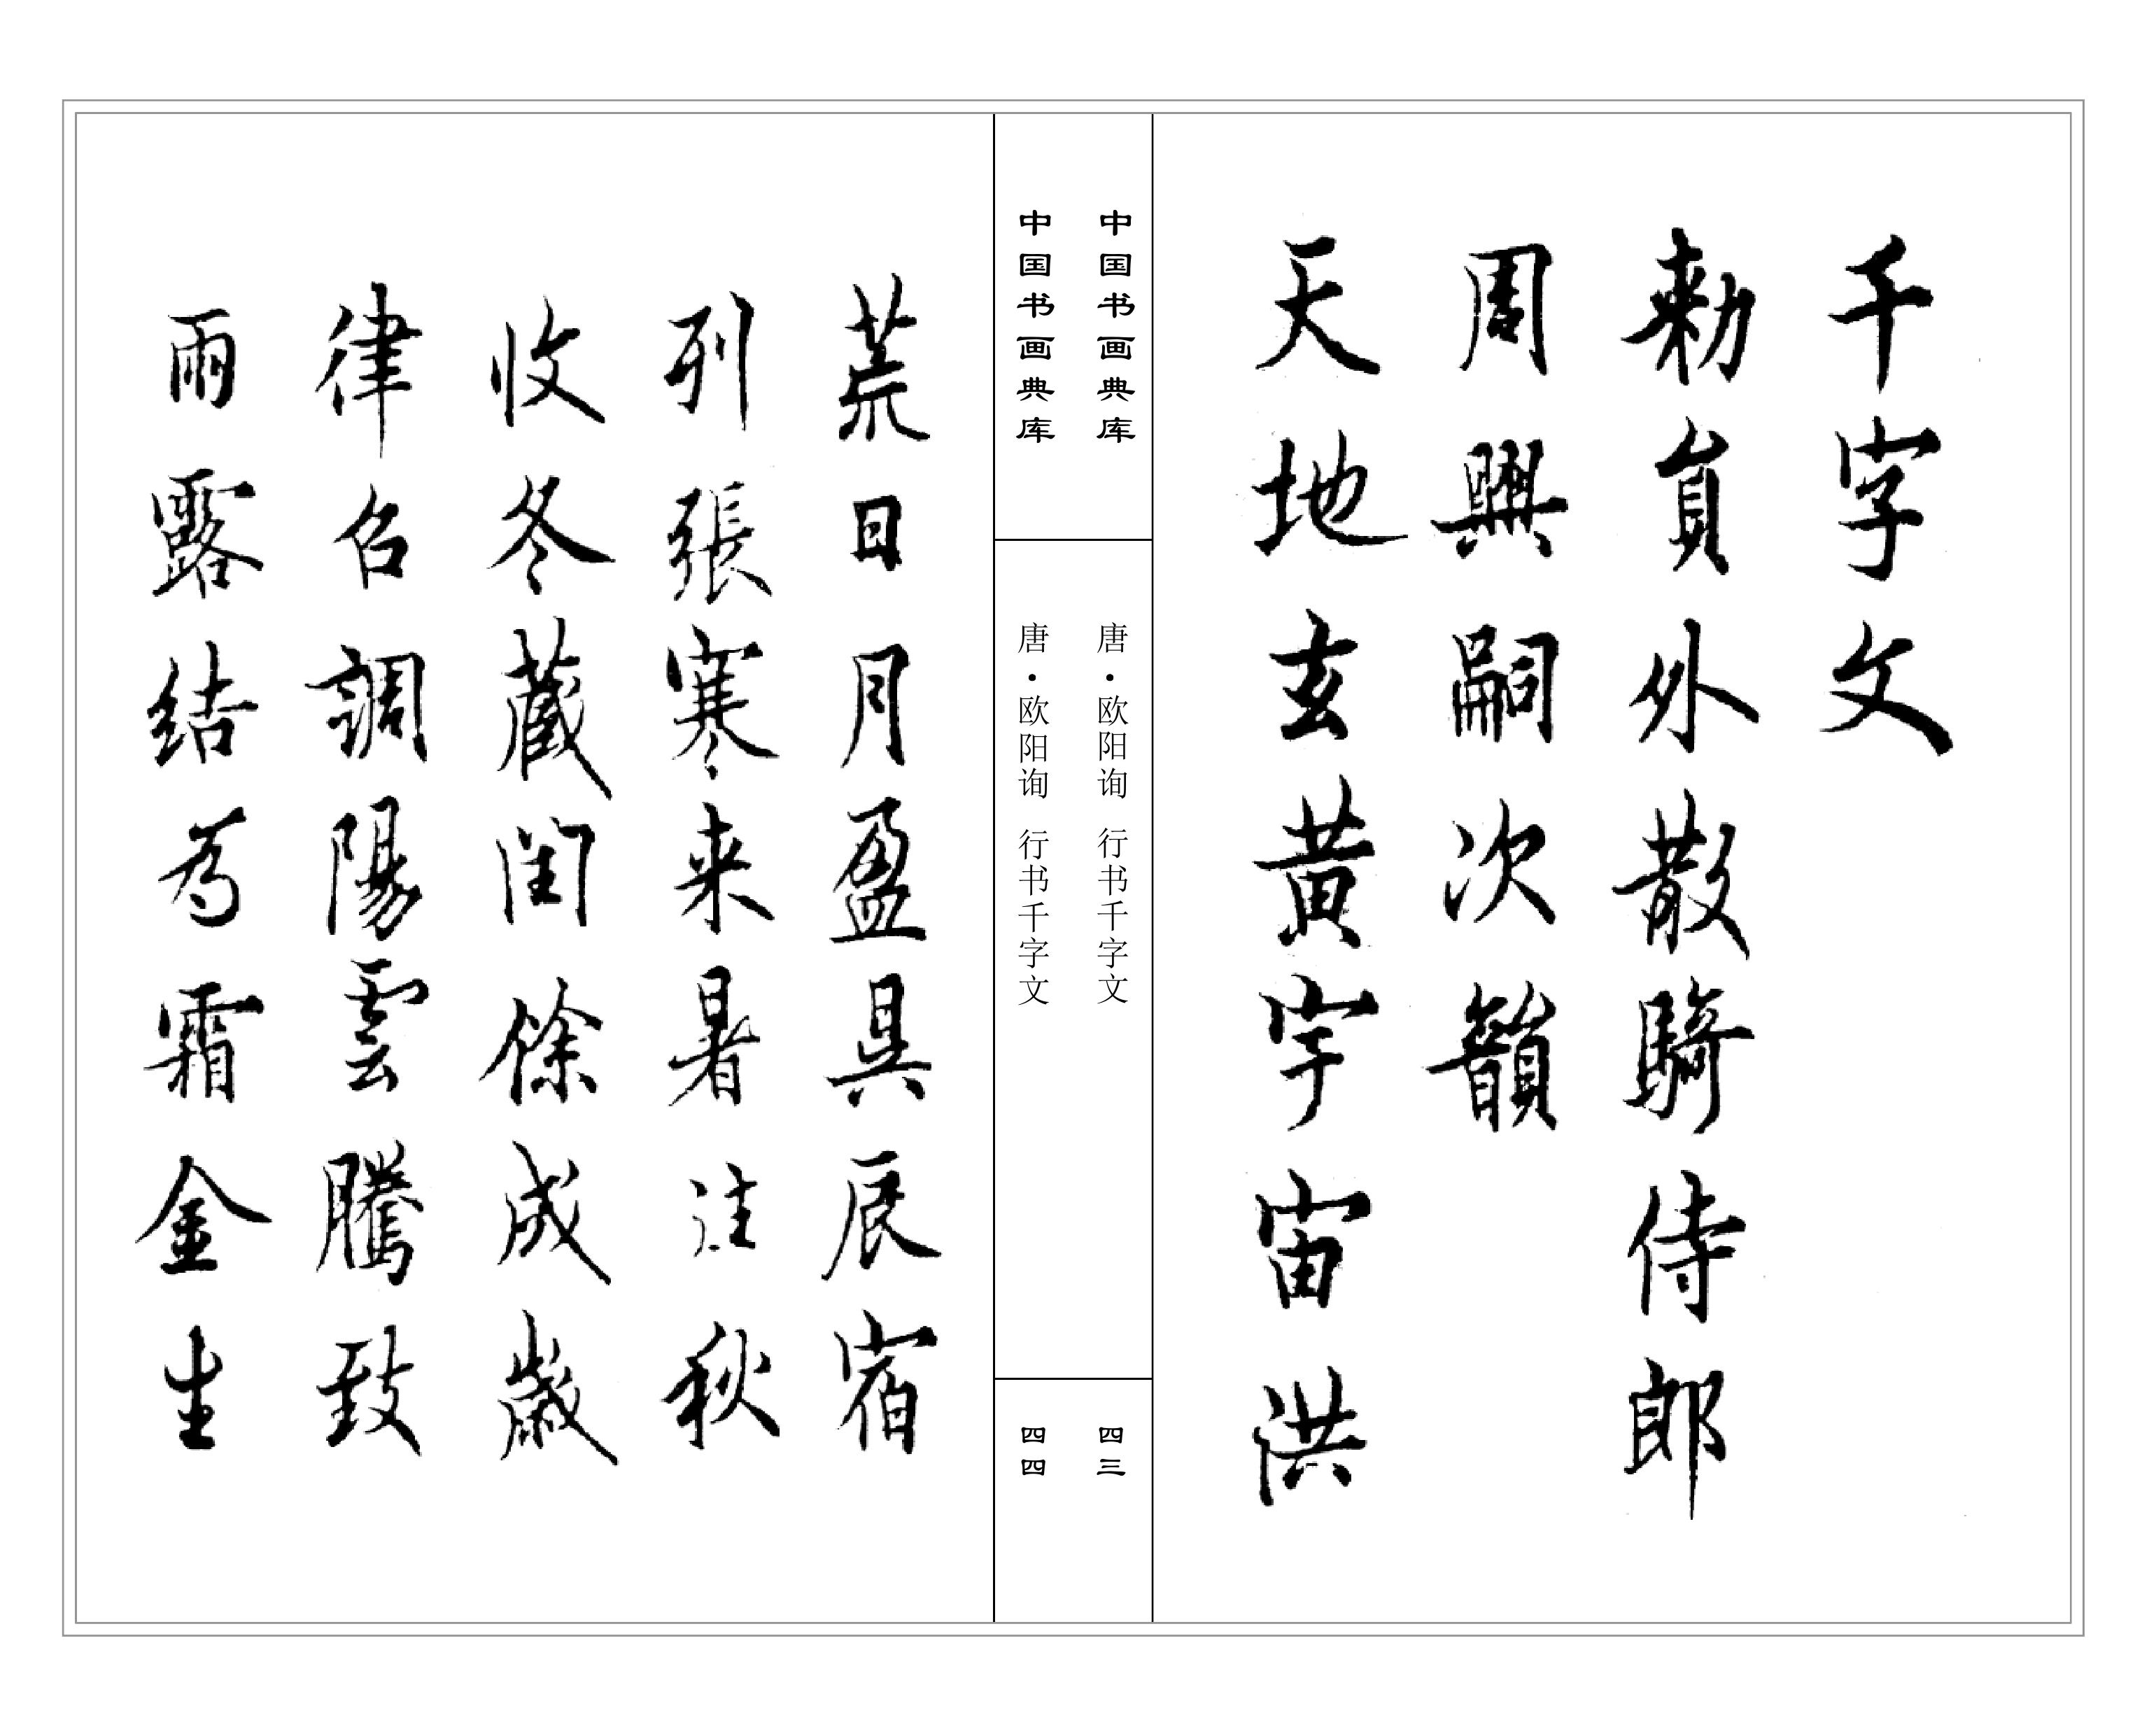 千字文
勅員外散騎侍郎
周興嗣次韻
天地玄黃宇宙洪
中国书画典库
唐·欧阳询 行书千字文
四三
中国书画典库
唐·欧阳询 行书千字文
四四
荒日月盈昃辰宿
列張寒来暑往秋
收冬藏閏餘成歲
律召調陽雲騰致
雨露結為霜金生